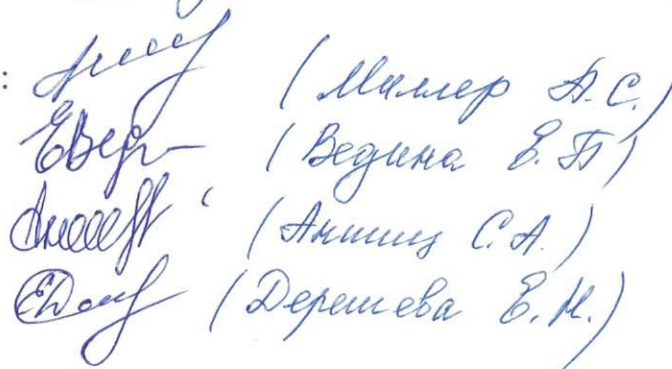 : (Миллер А.С.)
(Ведина Е.П)
(Аншиц С.А.)
(Дерешева Е.М.)